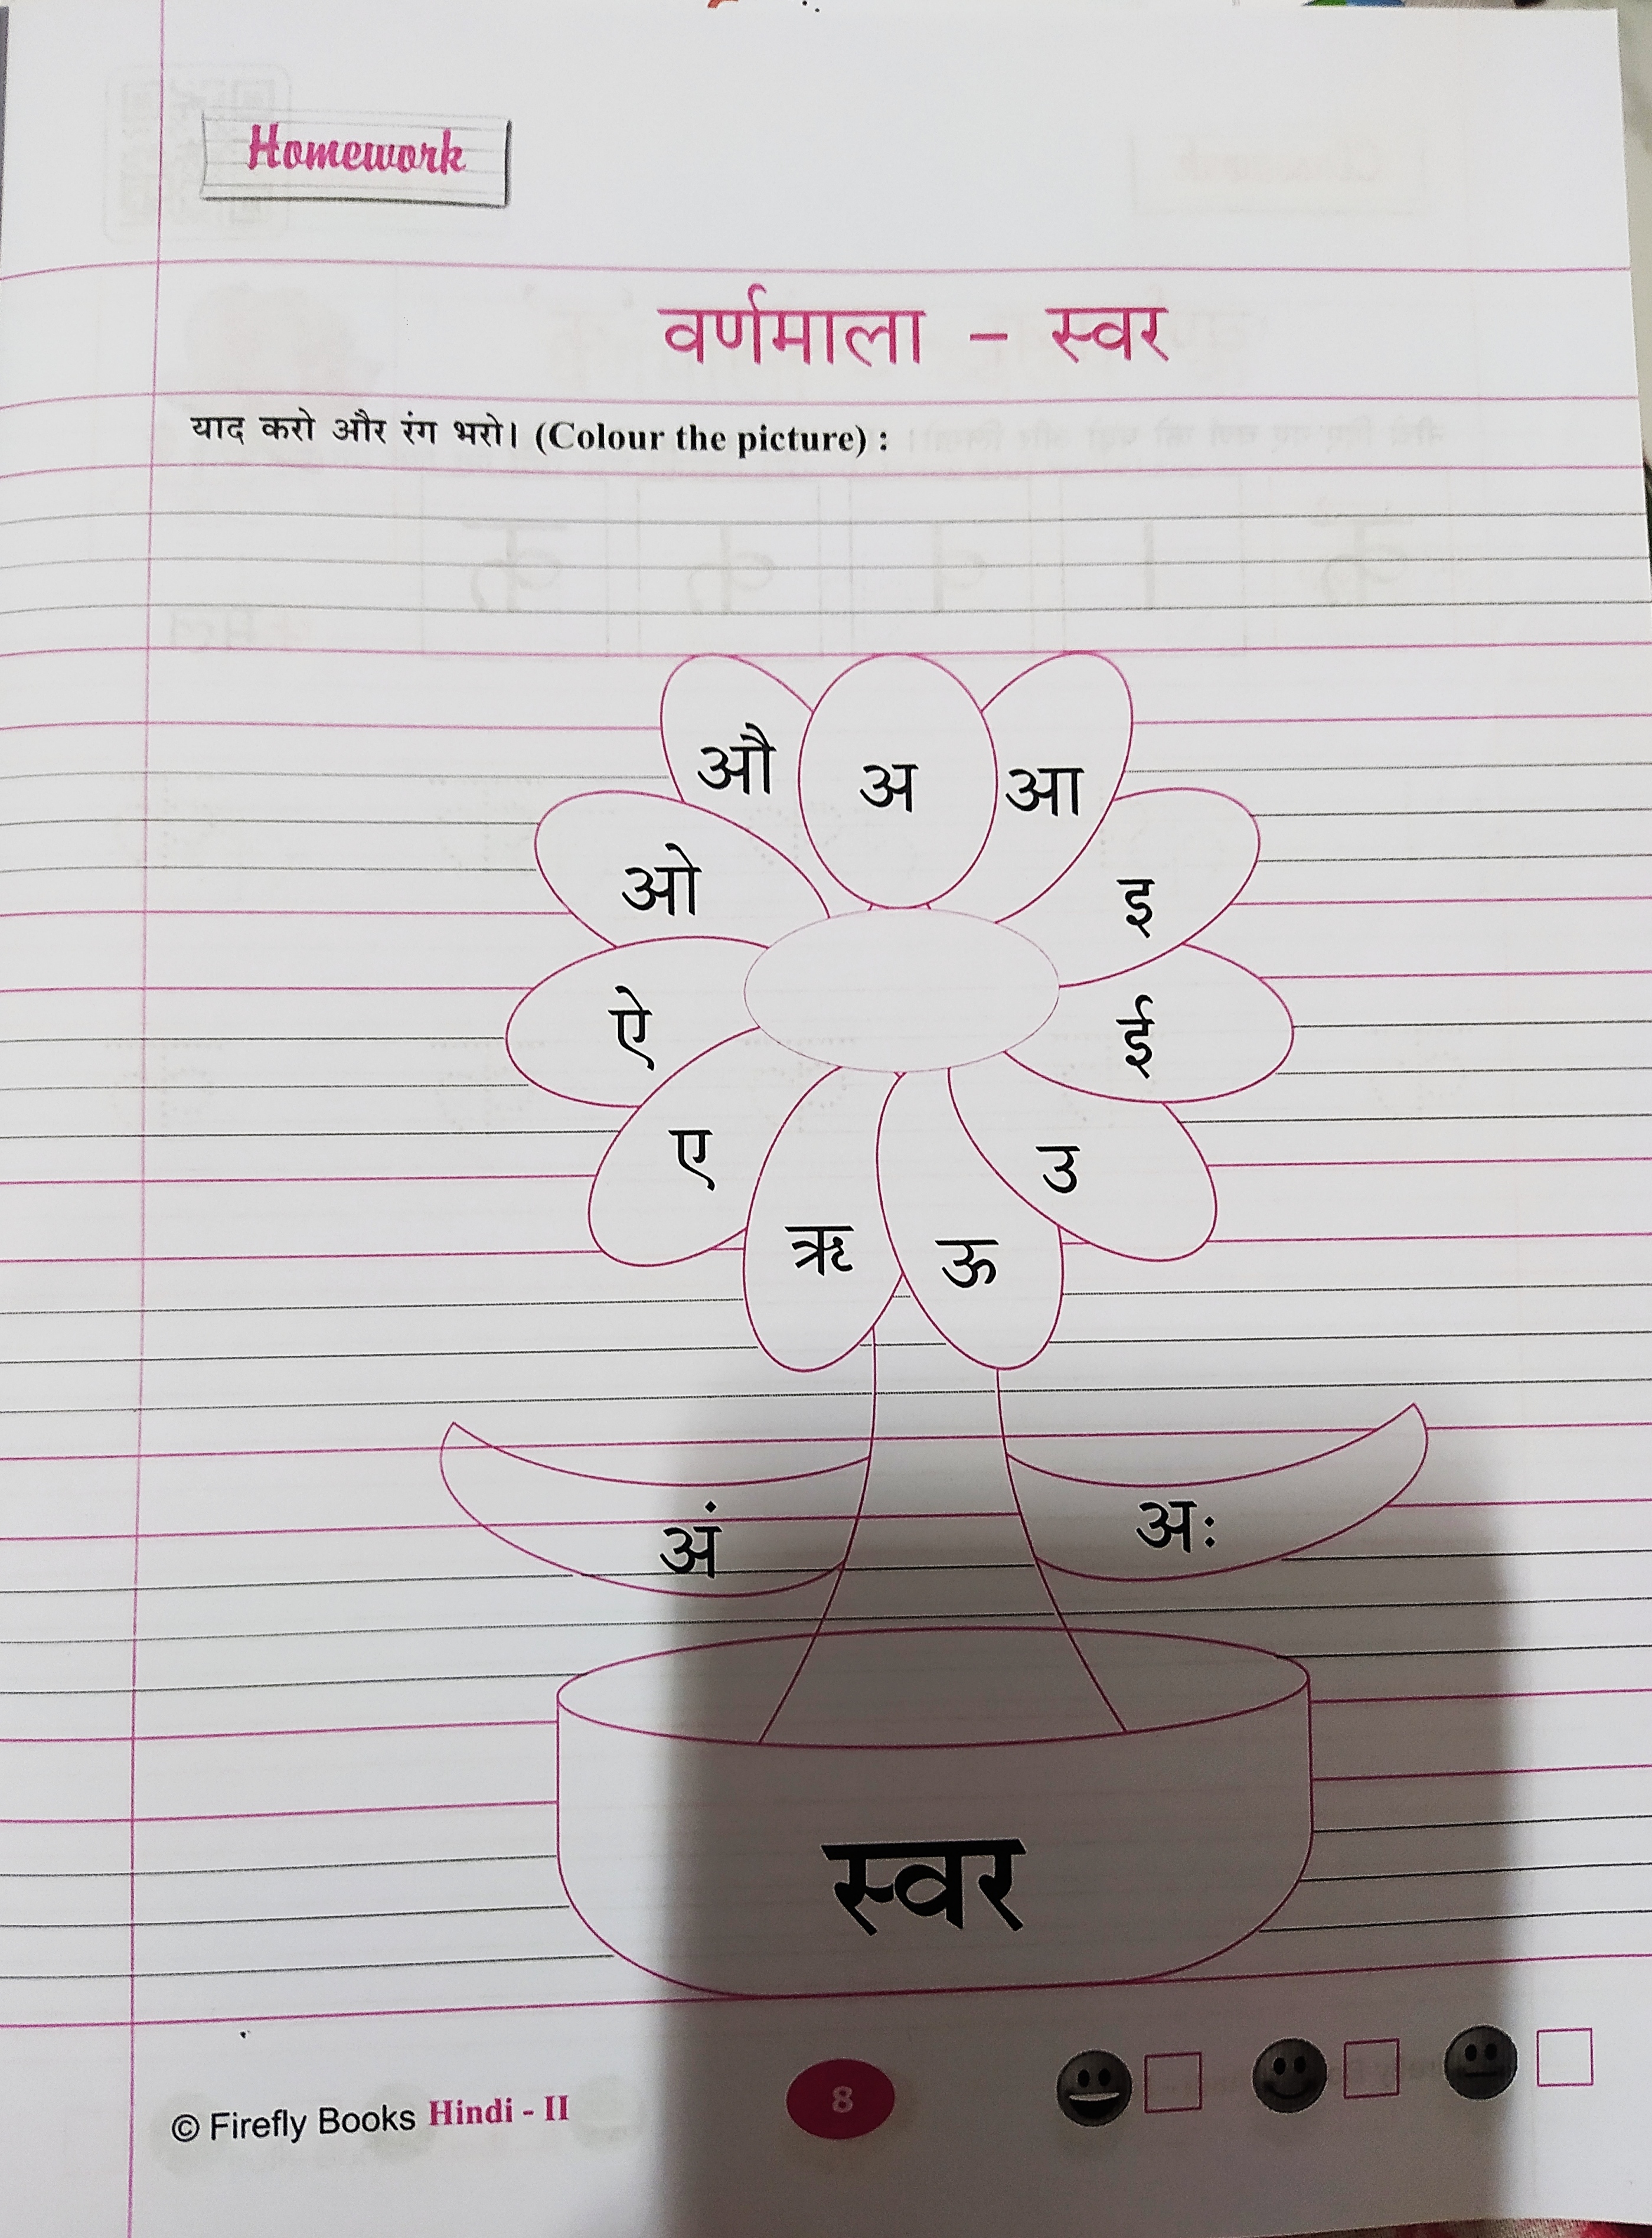 Homework
वर्णमाला – स्वर
याद करो और रंग भरो। (Colour the picture) :
औ अ आ
ओ इ
ऐ ई
ए उ
ऋ ऊ
अं अः
स्वर
© Firefly Books Hindi - II 8